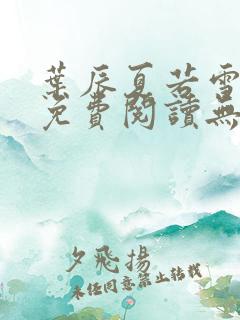 葉辰夏若雪
免費閱讀無
夕飛揚
未經同意禁止轉載